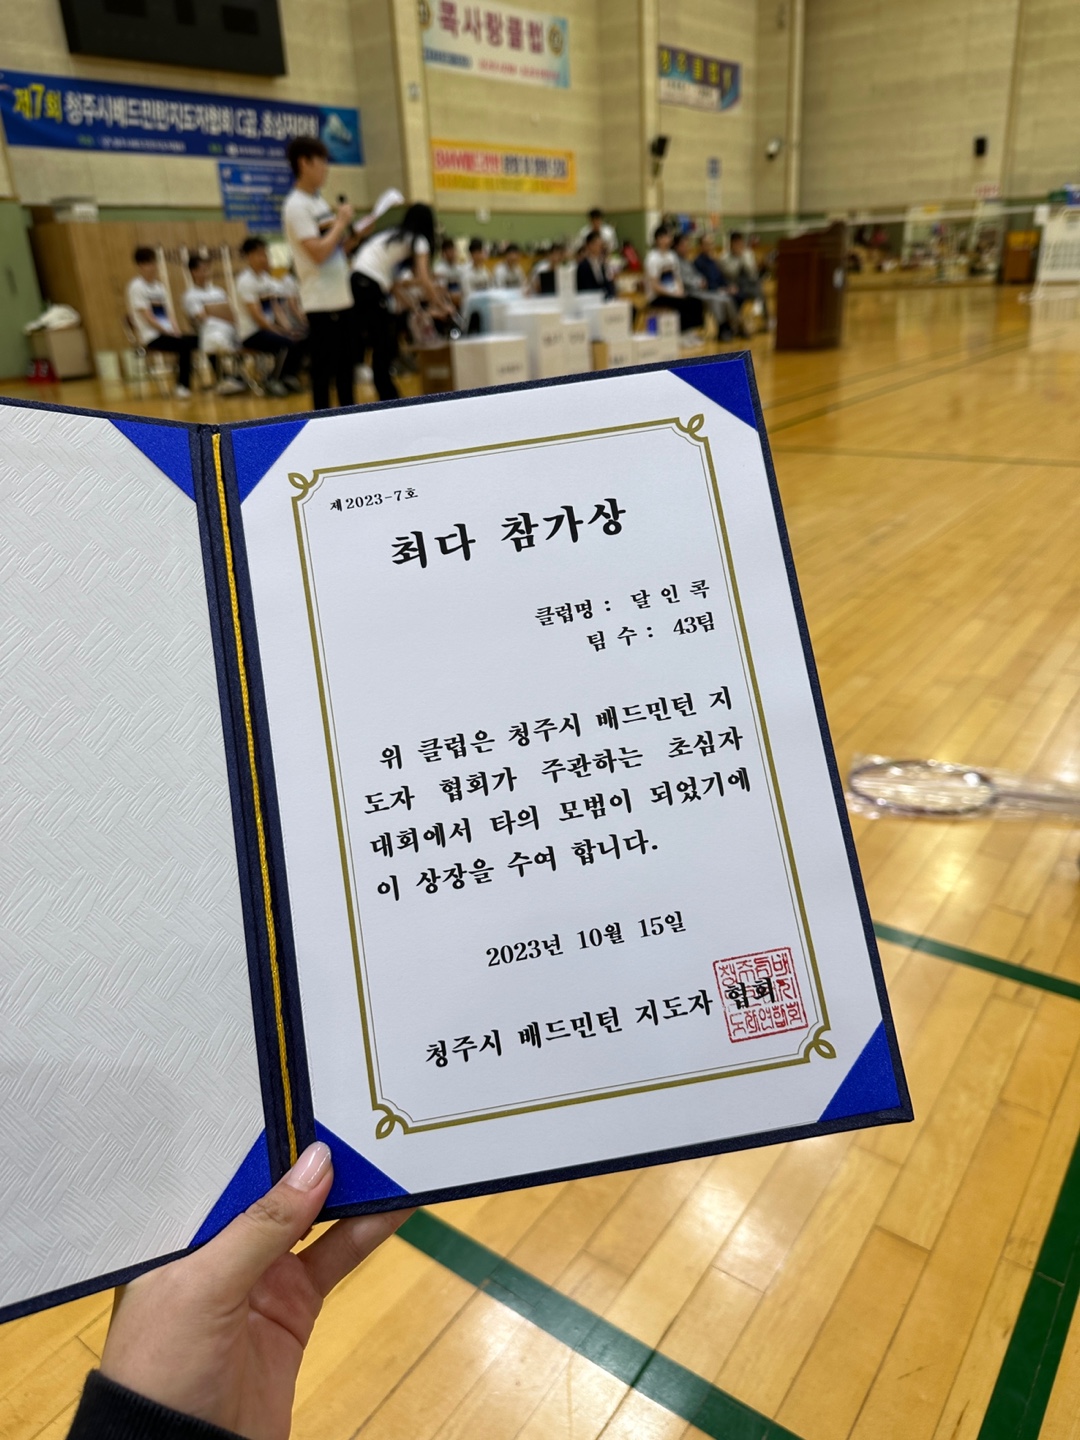 콕사랑클럽
제7회 청주시배드민턴지도자협회 C급, 초심자대회
제2023-7호
최다 참가상
클럽명 : 달 인 콕
팀 수 : 43팀
위 클럽은 청주시 배드민턴 지
도자 협회가 주관하는 초심자
대회에서 타의 모범이 되었기에
이 상장을 수여 합니다.
2023년 10월 15일
청주시 배드민턴 지도자 협회